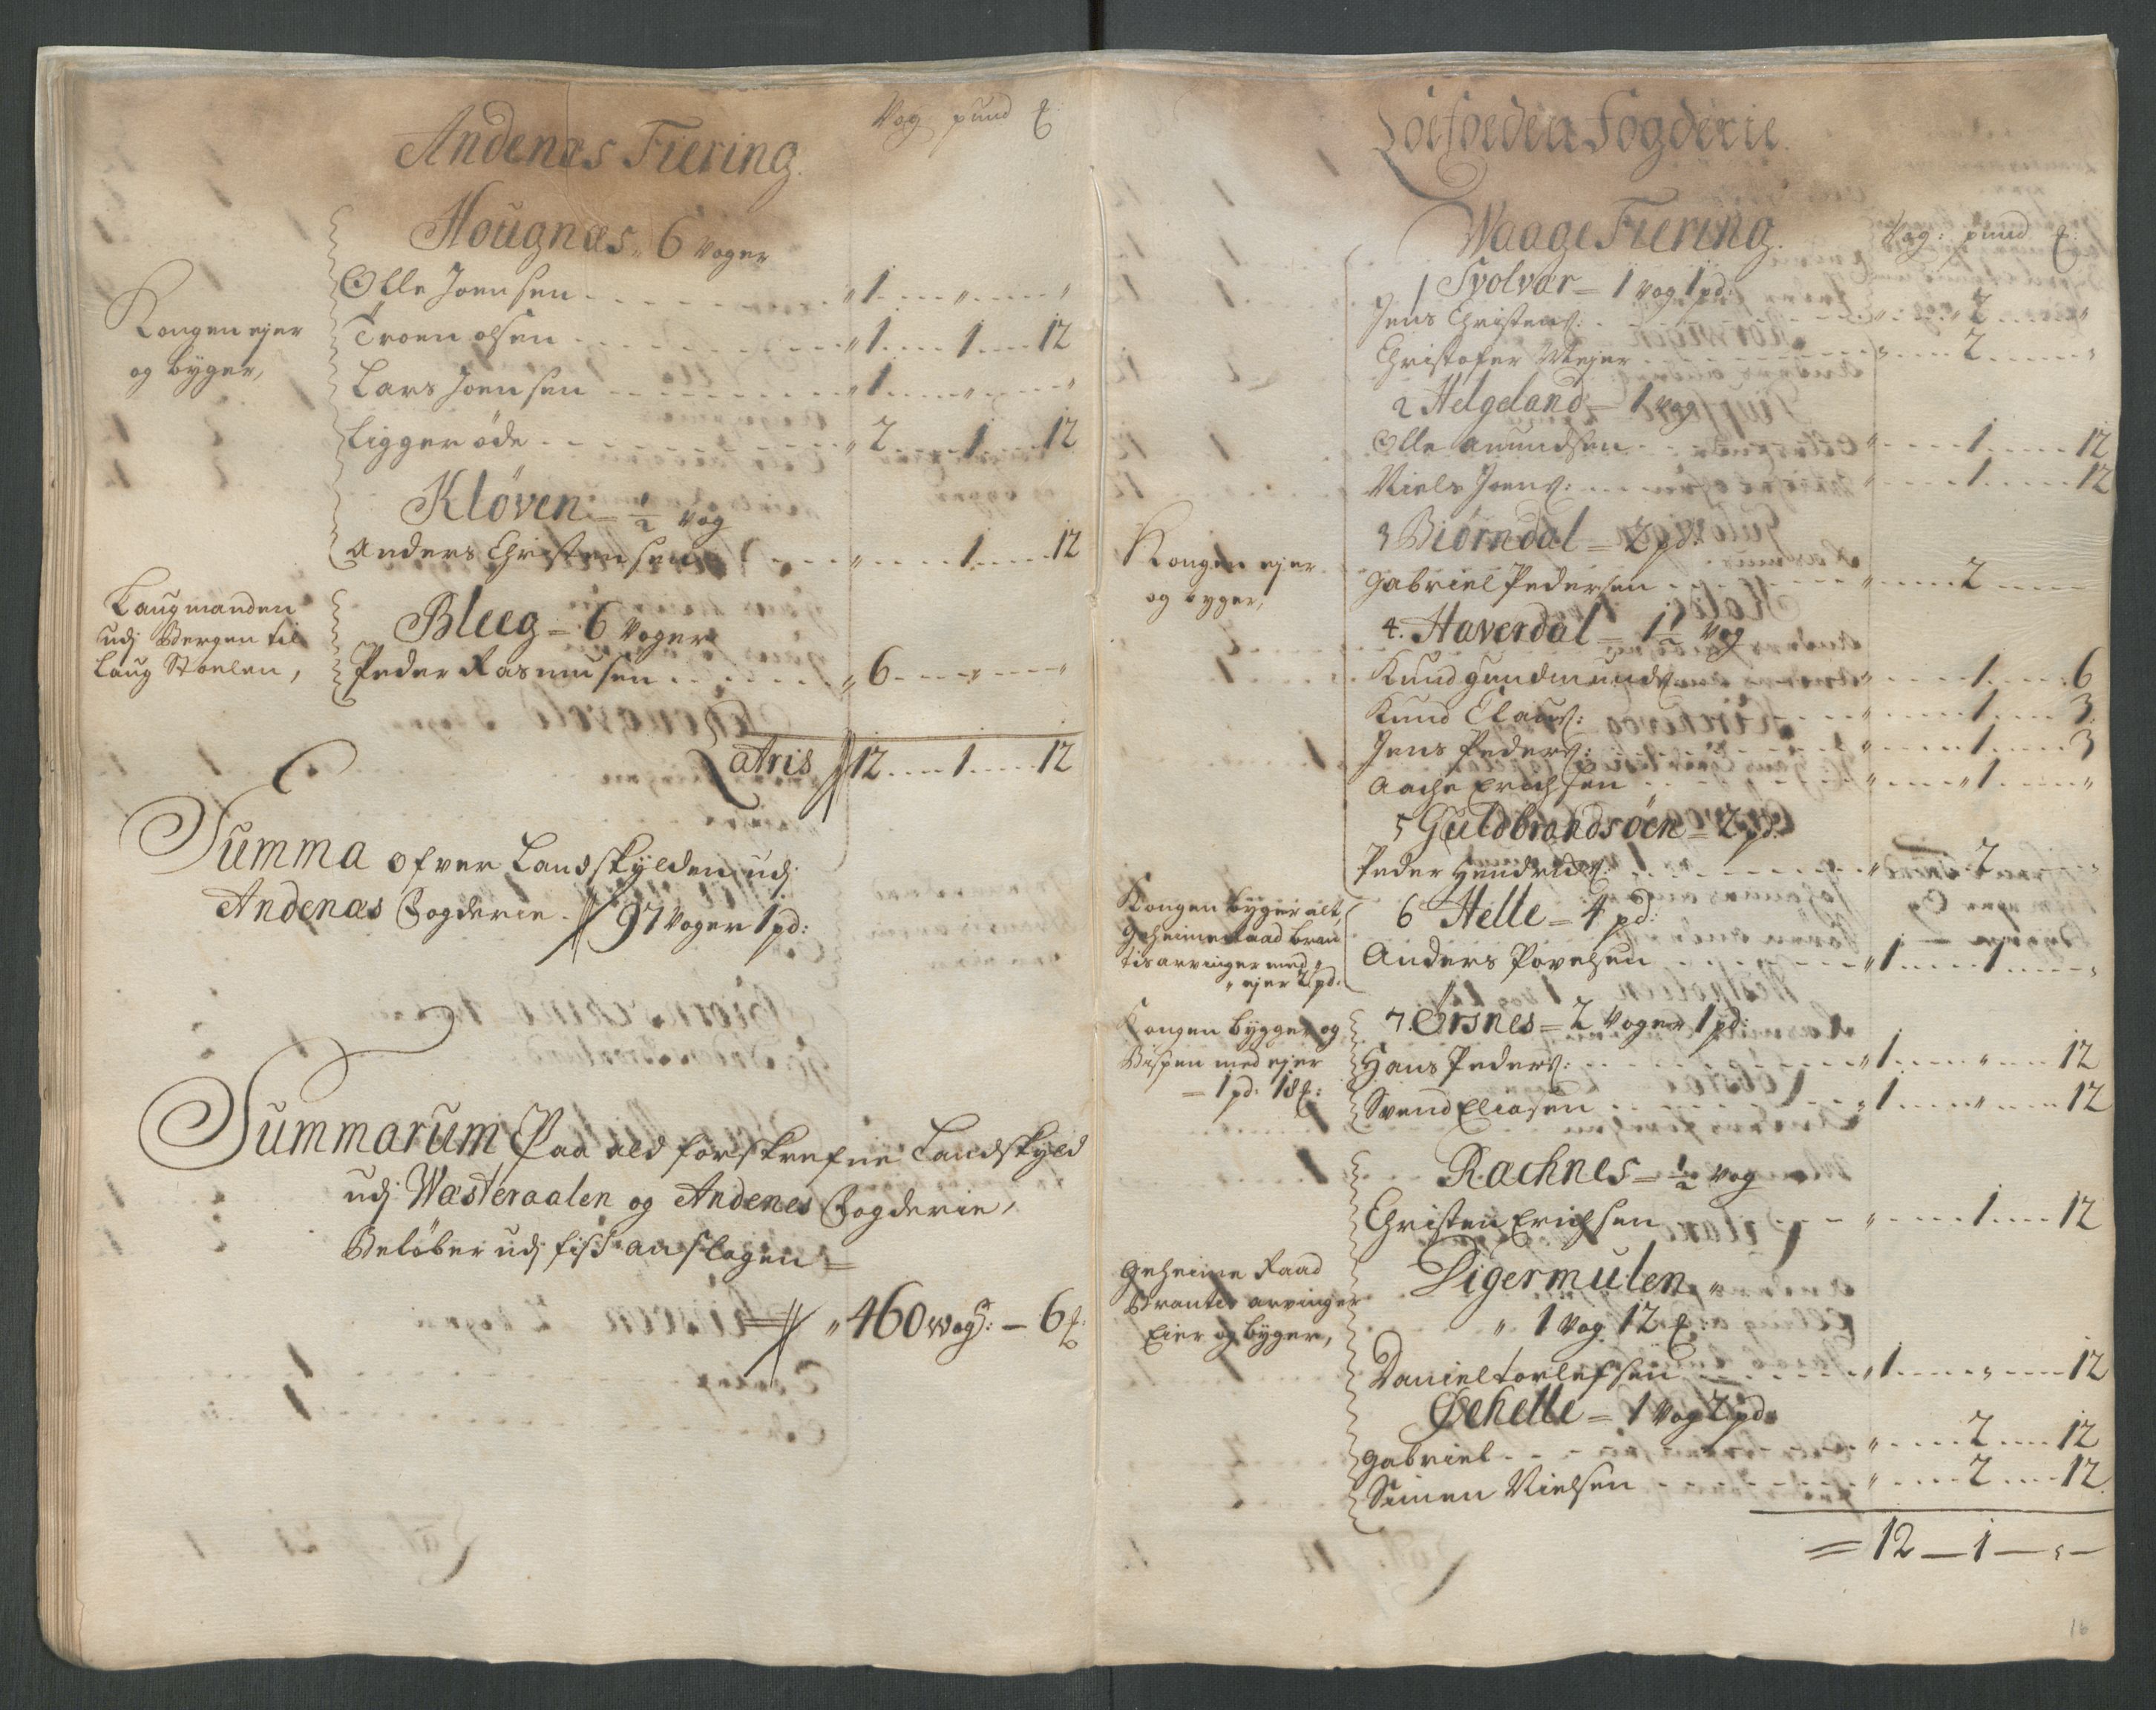 Vog pund ℔
Andenæs Fiering.
Hougnæs 6 Voger
Kongen ejer
og byger,
Olle Joensen " 1 " "
Troen olsen " 1 1 12
Lars Joensen " 1 " "
Ligger øde " 2 1 12
Kløven = 1/2 Vog
Anders Christensen " 1 12
Laugmanden
udj Bergen til
Laug Stoelen,
Bleeg = 6 Voger
Peder Rasmusen " 6 " "
Latris 12 1 12
Summa ofver Landskylden udj
Andenæs Fogderie 97 Voger 1 pd:
Summarum Paa ald forskrefne Landskyld
udj Wæsteraalen og Andenes Fogderie,
Beløber udj fisk anslagen =
" 460 Wog: – 6 ℔:
Lofforden Fogderie.
Waage Fiering.
Vog: pund ℔:
1 Svolvær = 1 Vog 1 pd:
Jens Christens: " 2 "
Christofer Mejer " 2 "
2 Helgeland = 1 Vog
Olle Amundsen " 1 12
Niels Joens: " 1 12
Kongen ejer
og byger,
3 Biørndal = 2 pd:
Gabriel Pedersen " 2
4. Haverdal = 1 1/2 Vog
Knud Gundmunds: " 1 6
Knud Claus: " 1 3
Jens Peders: " 1 3
Aache Erichsen " 1 "
5 Guldbrandsøen = 2 pd:
Peder Hendrichs: " 2
Kongen byger alt,
Geheime Raad Bran
tis arvinger med
" ejer 2 pd:
6 Helle = 4 pd:
Anders Povelsen " 1 1 "
Kongen bygger og
Bispen med ejer
= 1 pd: 18 ℔:
7. Ørsnes = 2 Voger 1 pd:
Hans Peders: " 1 " 12
Svend Eliasen " 1 " 12
Rachnes = 1/2 Vog
Christen Erichsen " 1 12
Geheime Raad
Brantes arvinger
Eier og byger,
Digermulen "
" 1 Vog 12 ℔:
Daniel torlefsen " 1 " 12
Øehelle = 1 Vog 2 pd:
Gabriel " 2 12
Simen Nielsen " 2 12
= 12 – 1 – " –
16